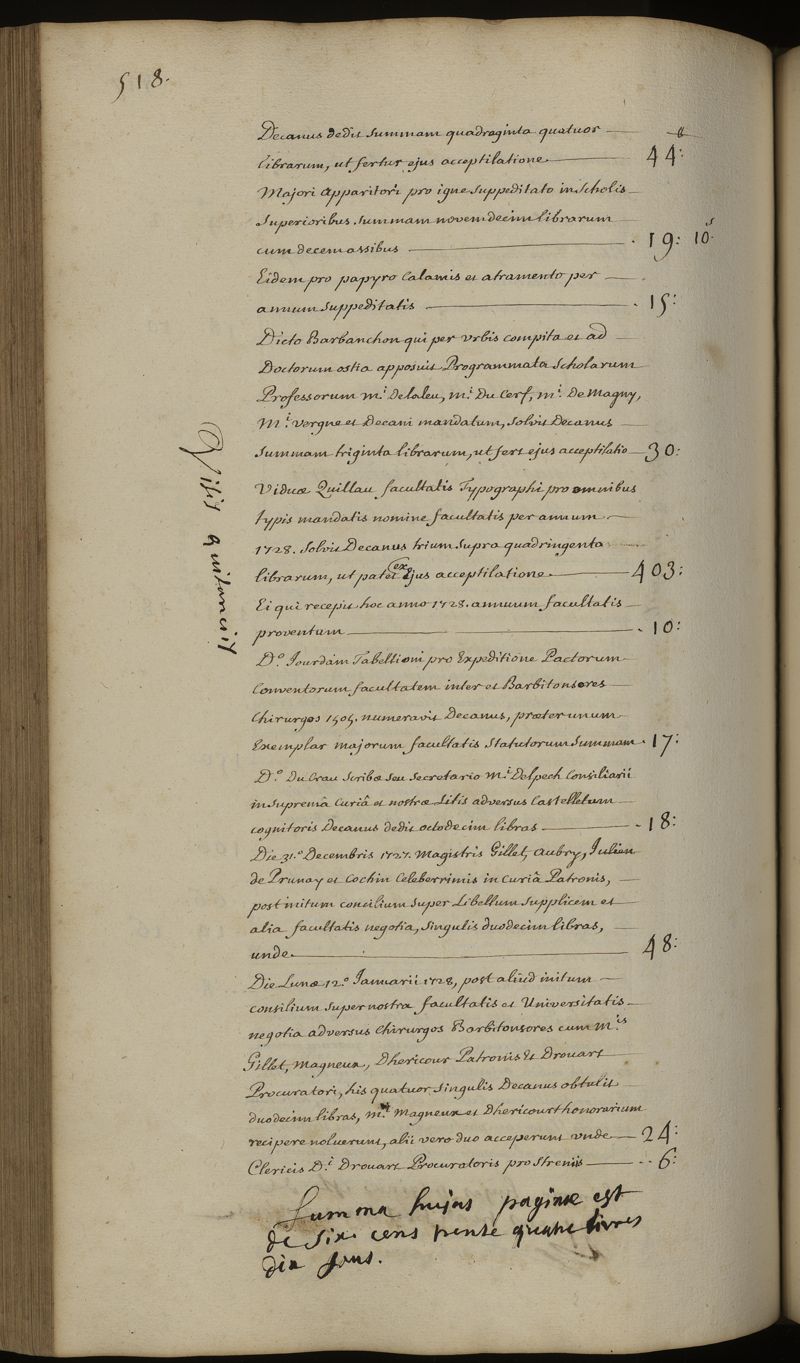 518.
Decanus dedit Summam quadraginta quatuor
librarum, ut fertur ejus acceptilatione 44:
Majori Apparitori pro igne Suppeditato in Scholis
Superioribus Summam novemdecim librarum
cum decem assibus 19: 10s
Eidem pro papyro Calamis et atramento per
annum Suppeditatis 15:
Dicto Barbanchon qui per Urbis compita et ad
Doctorum ostia apposuit Programmata Scholarum
Professorum M.i Delaleu, M.i Du Cerf, M.i De Magny,
M.i Vergne et Decani mandatum, Solvit Decanus
Summam triginta librarum, ut fert ejus acceptilatio 30:
Viduæ Quillau facultatis Typographi pro omnibus
typis mandatis nomine facultatis per annum
1728. Solvit Decanus trium Supra quadringenta
librarum, ut patet ex ejus acceptilatione 403:
Ei qui recepit hoc anno 1728. annuum facultatis
proventum 10:
D.o Jourdain Tabellioni pro Expeditione Pactorum
Conventorum facultatem inter et Barbitonsores
Chirurgos 1505. numeravit Decanus, præter unum
Exemplar majorum facultatis Statutorum Summam 17:
D.o Du Crau Scribæ Seu Secretario M.i Delpech Consiliarii
in Supremâ Curiâ et nostræ Litis adversus Castelletum
cognitoris Decanus dedit octodecim libras 18:
Die 31.o Decembris 1727. Magistris Gillet, Aubry, Julien
de Prunay et Cochin Celeberrimis in Curiâ Patronis,
post initum consilium Super Libellum Supplicem et
alia facultatis negotia, Singulis duodecim libras,
unde 48:
Die Lunæ 12.o Januarii 1728, post aliud initum
consilium Super nostra facultatis et Universitatis
negotia adversus Chirurgos Barbitonsores cum M.is
Gillet, Magneux, Dhericour Patronis Et Drouart
Procuratori, his quatuor Singulis Decanus obtulit
duodecim libras, M. Magneux et Dhericourt honorarium
recipere noluerunt, alii vero duo acceperunt unde 24:
Clericis D.i Drouart Procuratoris pro Streniis 6:
Summa hujus paginæ est
de Six cens trente quatre livres
dix sous.